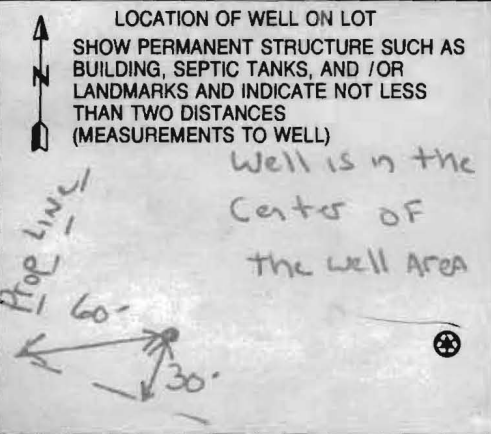 LOCATION OF WELL ON LOT
SHOW PERMANENT STRUCTURE SUCH AS
BUILDING, SEPTIC TANKS, AND / OR
LANDMARKS AND INDICATE NOT LESS
THAN TWO DISTANCES
(MEASUREMENTS TO WELL)
N
Well is in the
Center OF
the well Area
Prop LINE
60'
30'